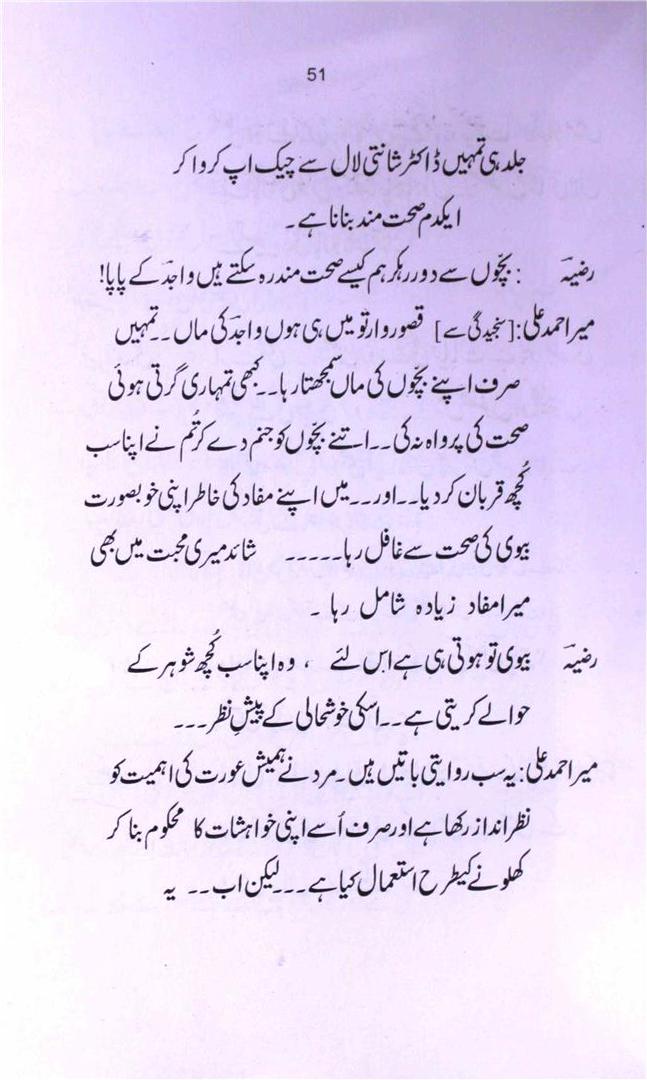 51
جلد ہی تمہیں ڈاکٹر شانتی لال سے چیک اپ کروا کر
ایکدم صحت مند بنانا ہے۔
رضیہؔ : بچّوں سے دور رہکر ہم کیسے صحت مند رہ سکتے ہیں واجدؔ کے پاپا!
میر احمد علی: [سنجیدگی سے] قصوروار تو میں ہی ہوں واجدؔ کی ماں ۔۔ تمہیں
صرف اپنے بچّوں کی ماں سمجھتا رہا۔۔ کبھی تمہاری گرتی ہوئی
صحت کی پرواہ نہ کی ۔۔ اتنے بچّوں کو جنم دے کر تُم نے اپنا سب
کُچھ قربان کر دیا۔۔ اور ۔۔ میں اپنے مفاد کی خاطر اپنی خوبصورت
بیوی کی صحت سے غافل رہا۔۔۔۔۔ شائد میری محبت میں بھی
میرا مفاد زیادہ شامل رہا ۔
رضیہؔ بیوی تو ہوتی ہی ہے اس لئے ، وہ اپنا سب کُچھ شوہر کے
حوالے کر یتی ہے۔۔ اسکی خوشحالی کے پیشِ نظر ۔۔۔
میر احمد علی: یہ سب روایتی باتیں ہیں۔ مرد نے ہمیش عورت کی اہمیت کو
نظر انداز رکھا ہے اور صرف اُسے اپنی خواہشات کا محکوم بنا کر
کھلونے کیطرح استعمال کیا ہے ۔۔۔ لیکن اب ۔۔ یہ